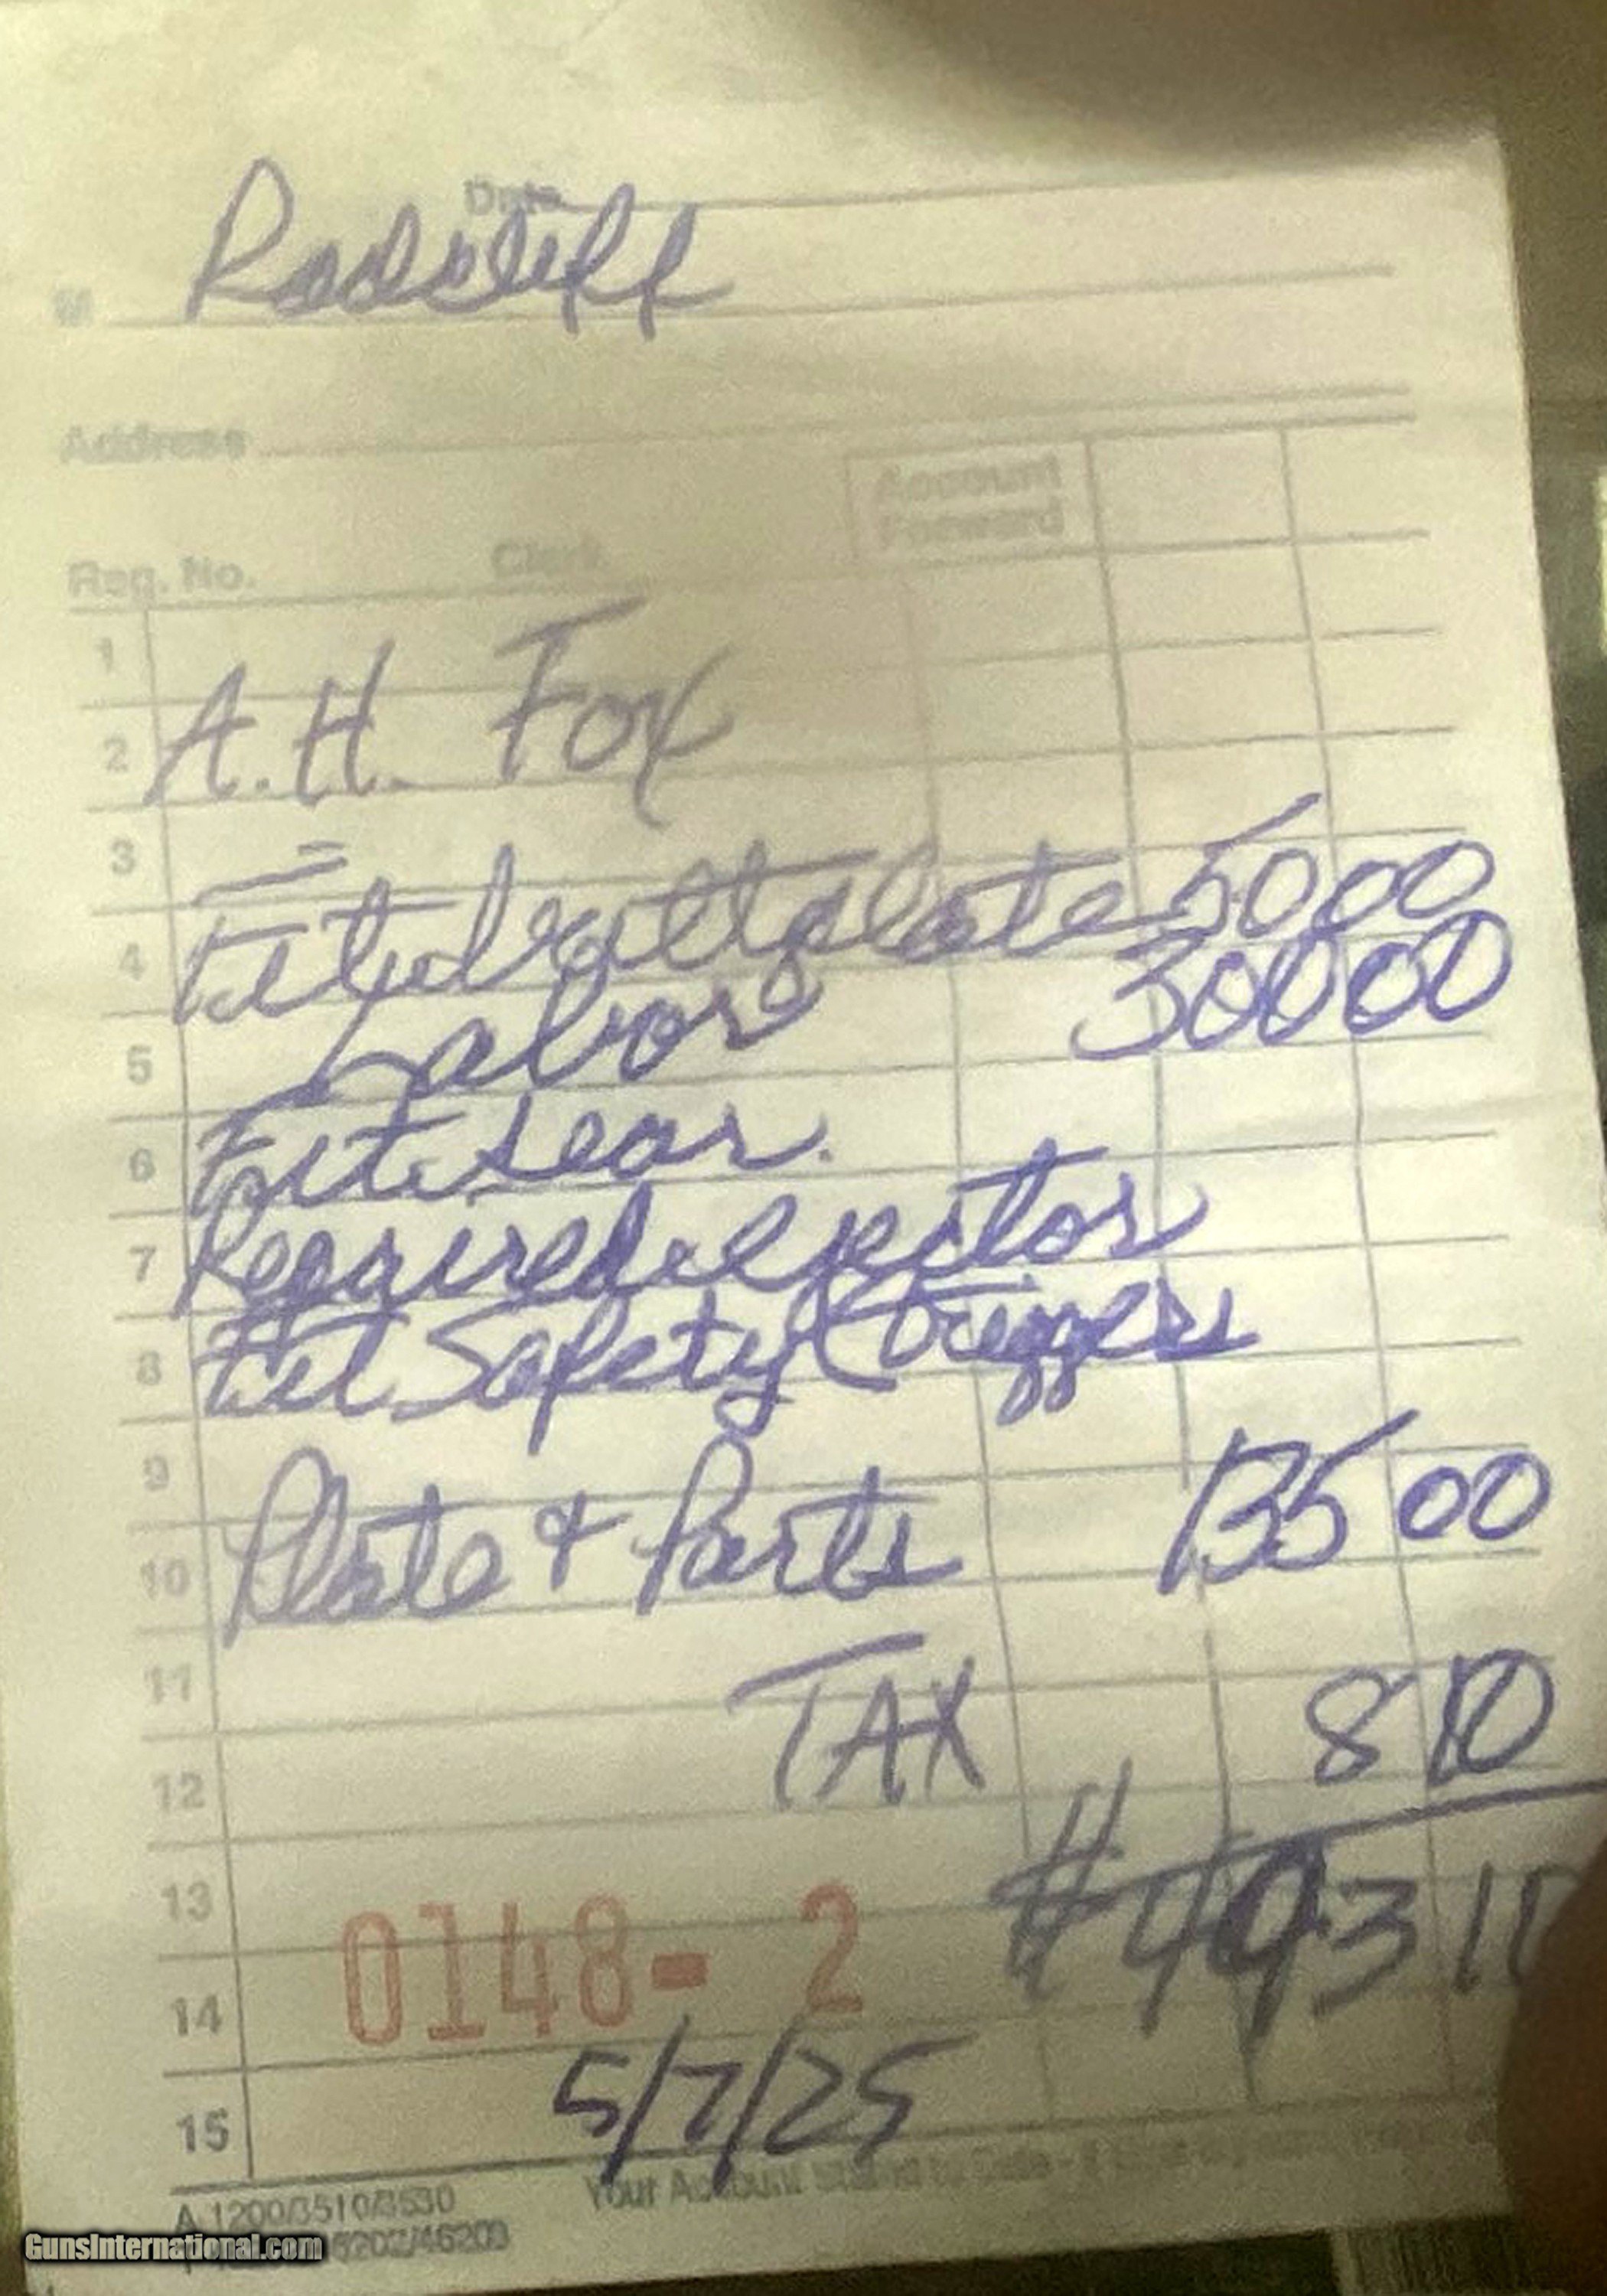 Date
Radcliff
M
Address
Account
Forward
Reg. No. Clerk
1
A.H. Fox
2
3
Fited buttplate 50 00
4
Labor 300 00
5
Fit sear.
6
Repaired ejector
7
Fit Safety & Triggers
8
9
Plate & Parts 135 00
10
11
TAX 8 10
12
$493 10
13
0148- 2
14
5/7/25
15
Your Account Stated to Date - If
A 1200/3510/3530
GunsInternational.com 46203